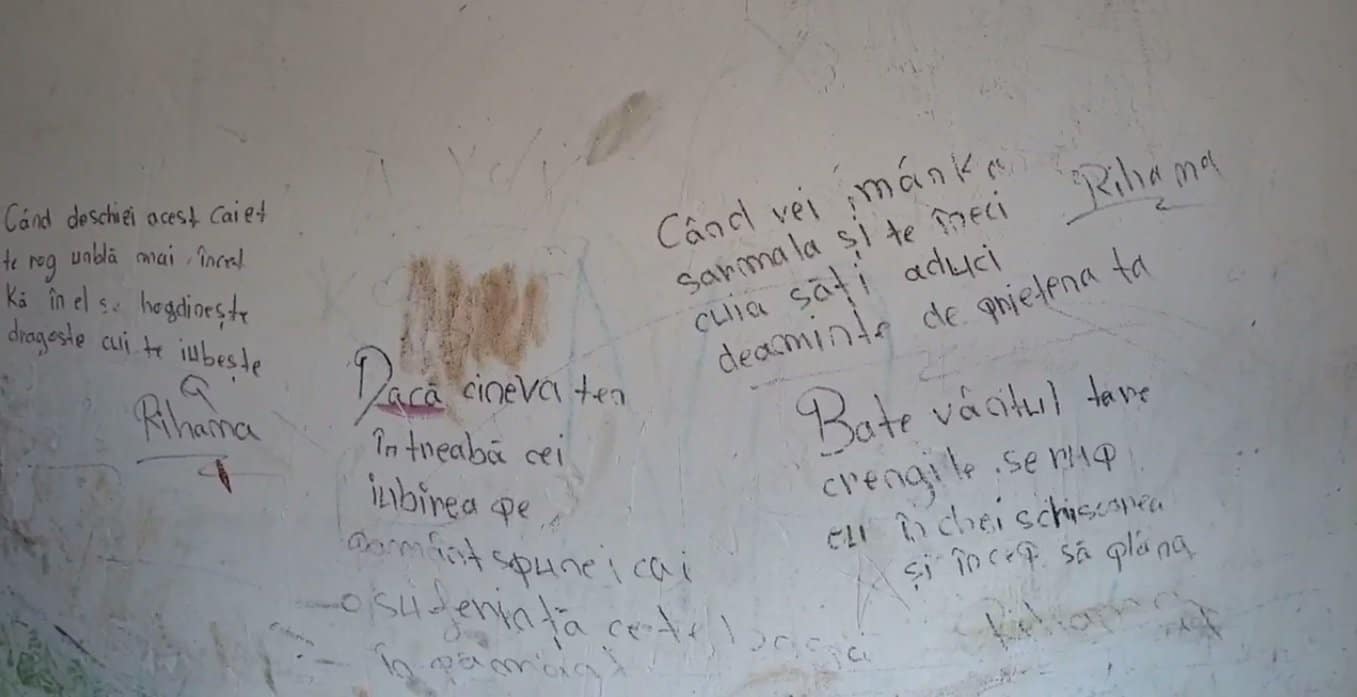 Când deschiei acest caiet
te rog unblă mai încet
Kă în el s. hogdinește
dragoste cui te iubește
Rihama
Dacă cineva ten
întreabă cei
iubirea pe
pamânt spune i cai
o suferință ce te
în pământ
Când vei mânka
sarmala și te îneci
cuia săți aduci
deaminte de prietena ta
Rihama
Bate vâcitul tare
crengile se rup
eu închei schisoarea
și încep să plâng